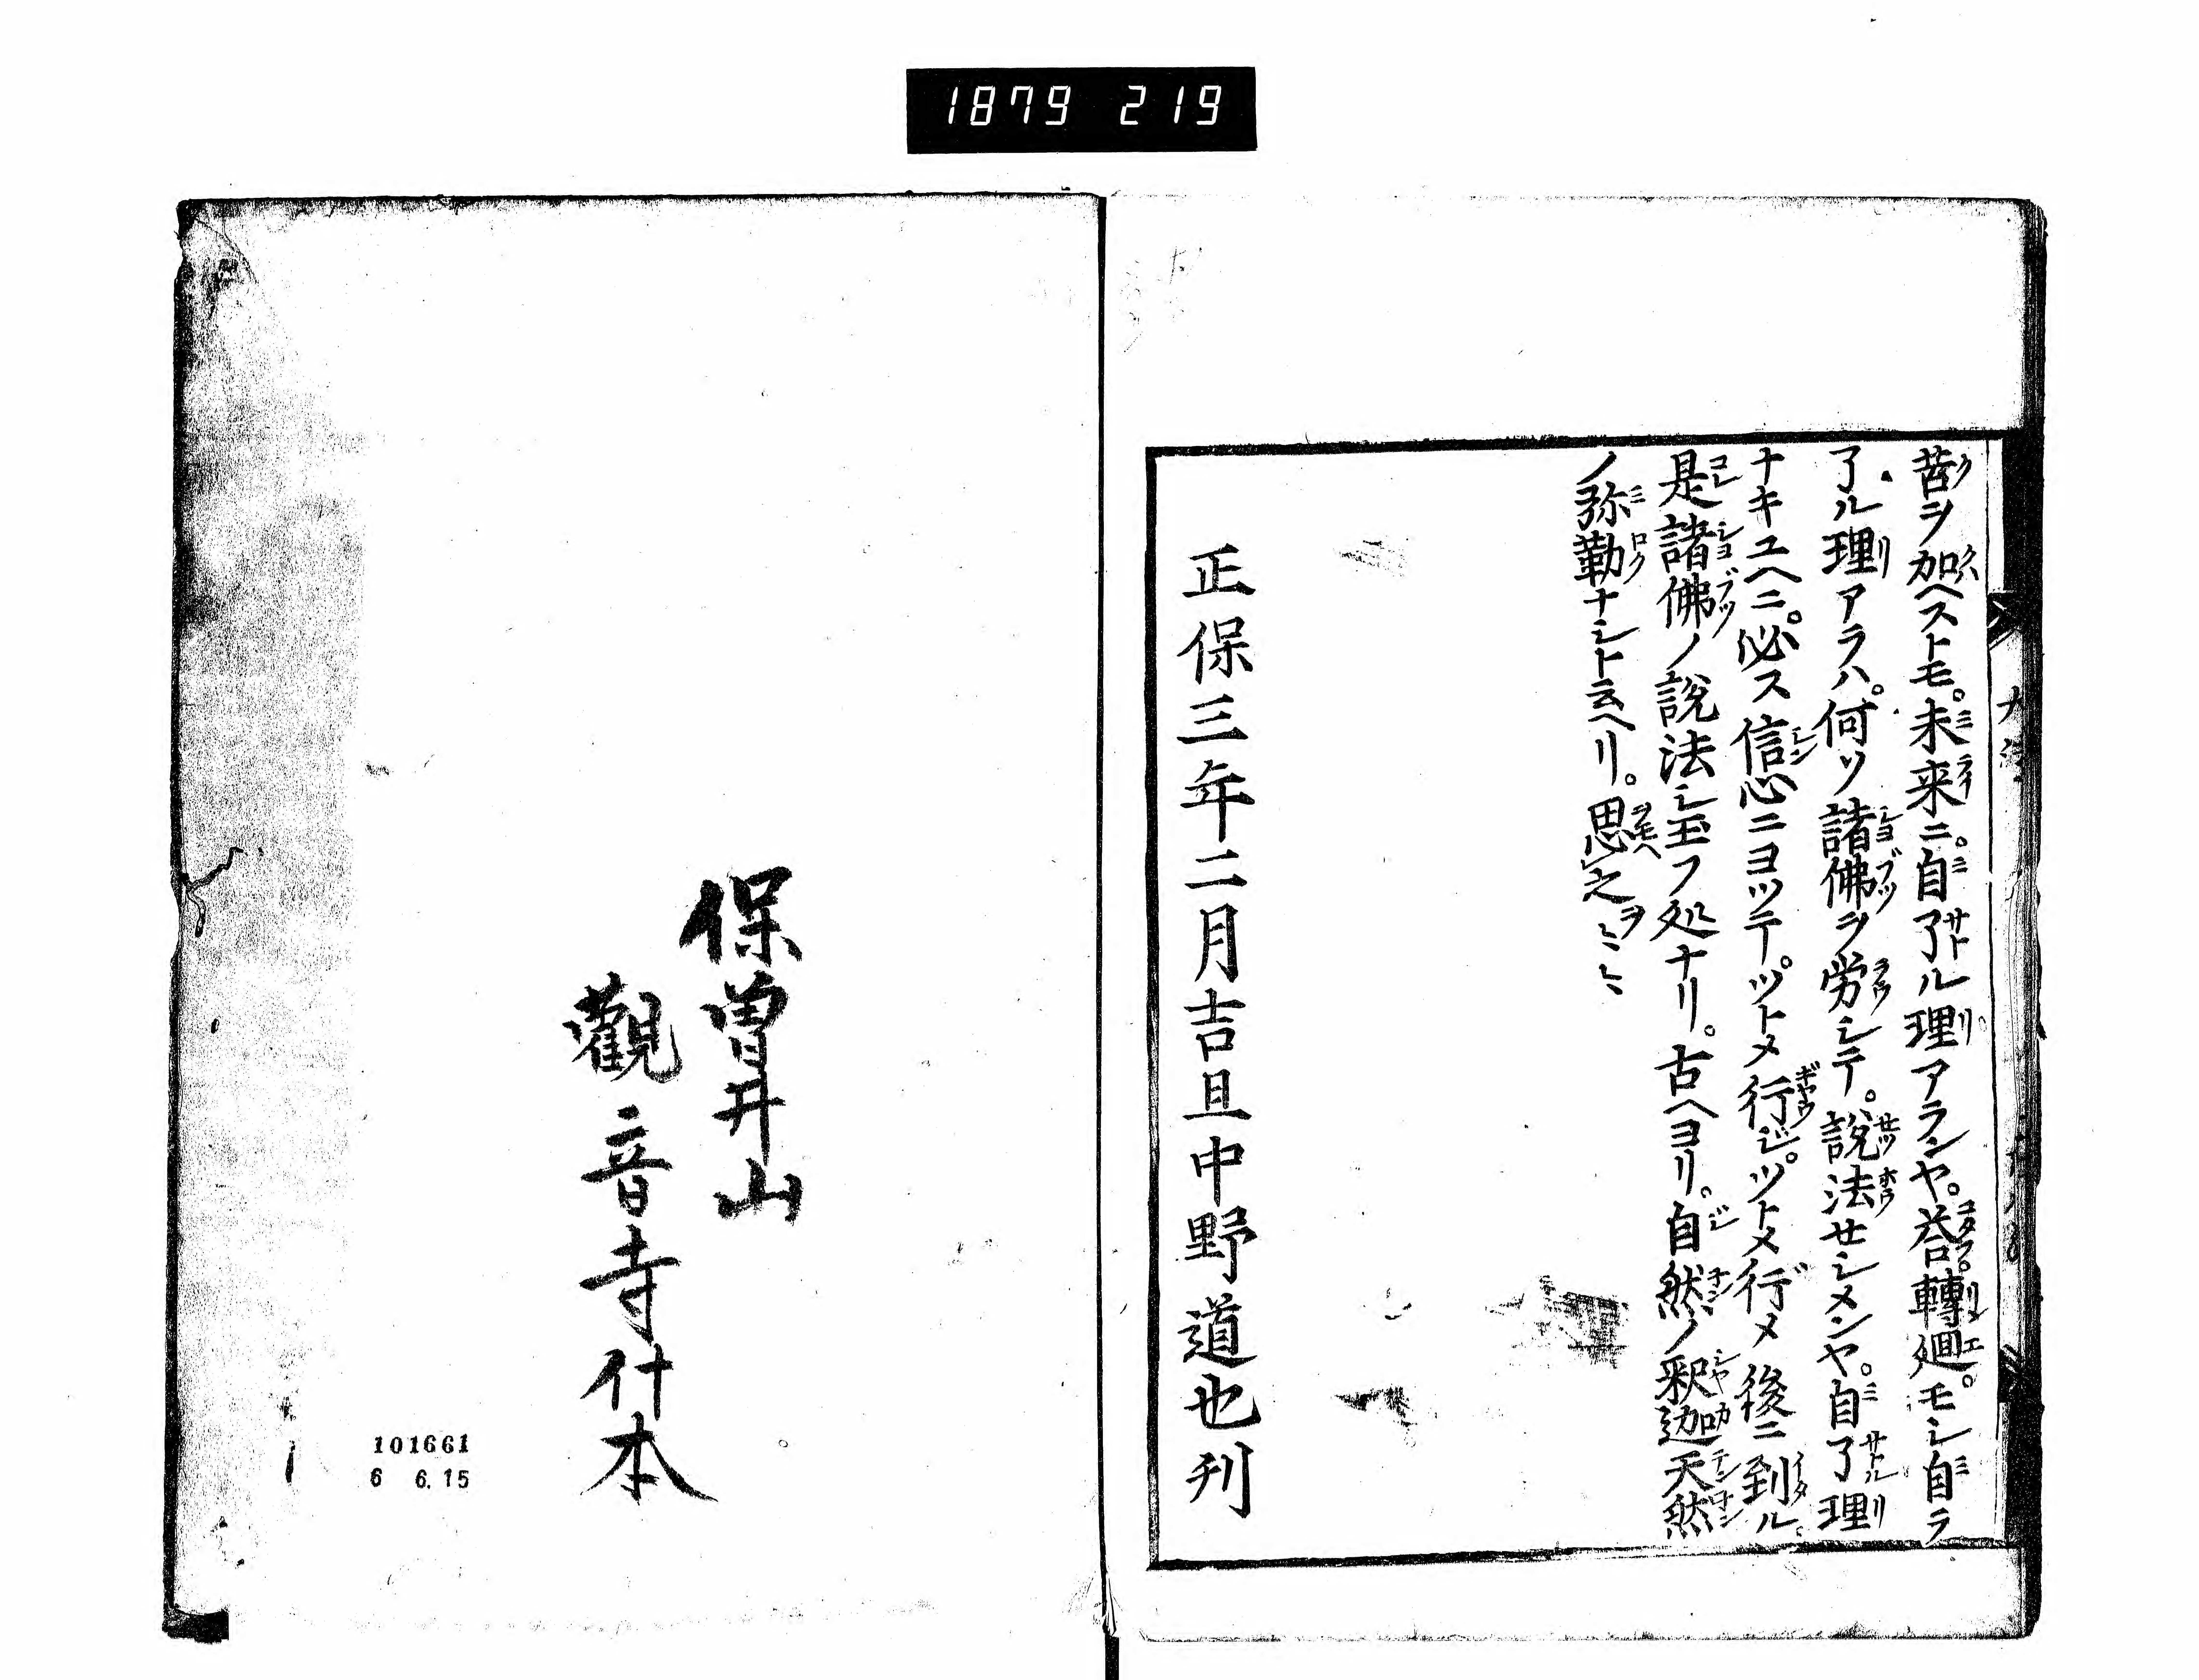 1879 219
苦ヲ加ヘストモ。未来ニ。自了ル理アランヤ。荅轉廻。モシ自ラ
了ル理アラハ。何ソ諸佛ヲ労シテ。説法セシメンヤ。自了理
ナキユヘニ。必ス信心ニヨツテ。ツトメ行ジ。ツトメ行メ後ニ到ル。
是諸佛ノ説法シ玉フ処ナリ。古ヘヨリ。自然ノ釈迦天然
ノ弥勒ナシト云ヘリ。思之ヲ
正保三年二月吉旦中野道也刊
保曽井山
觀音寺什本
101661
6 6.15